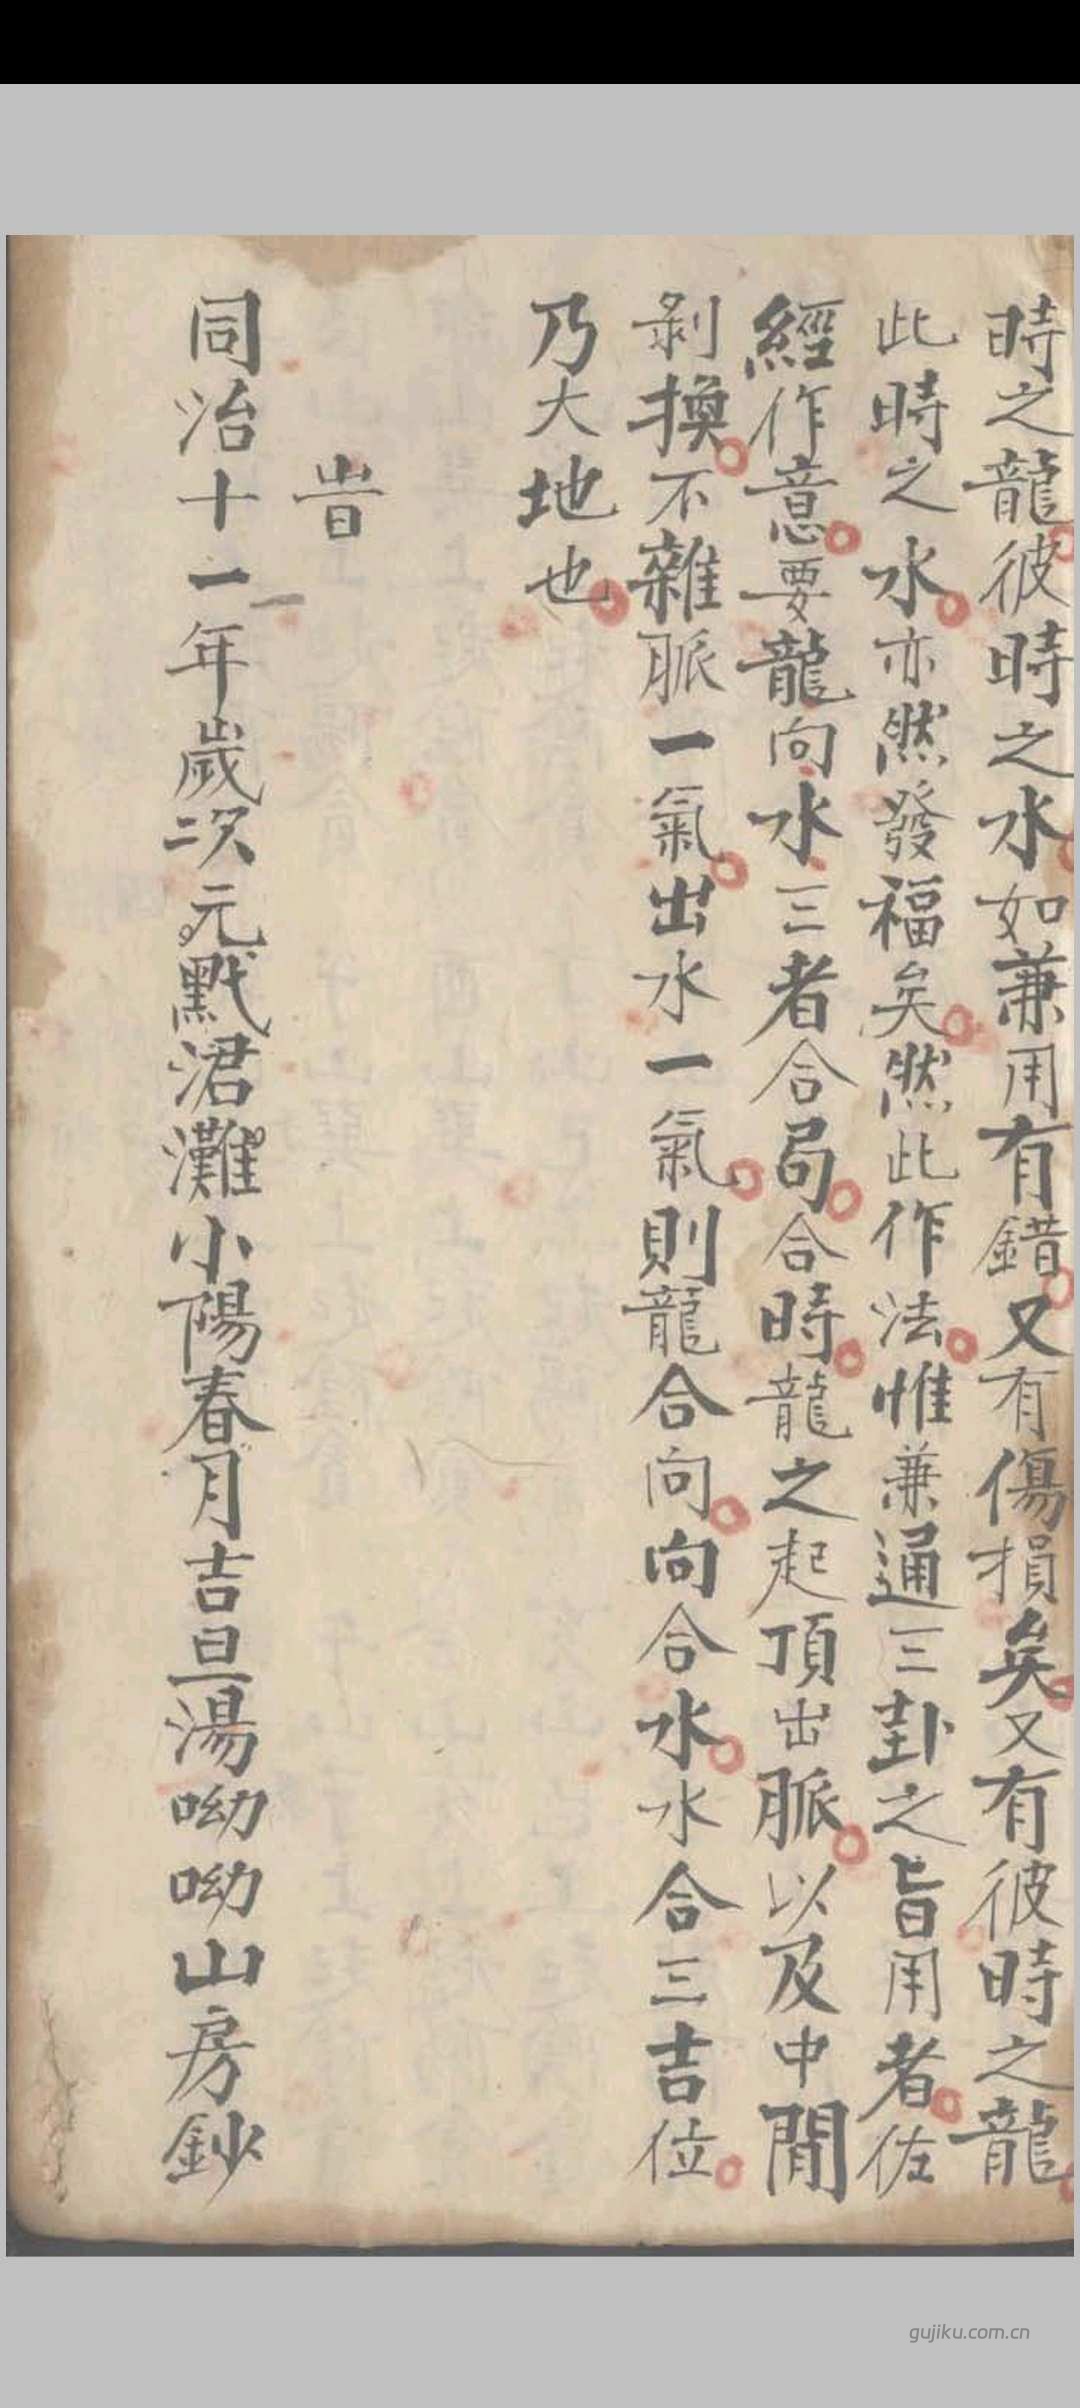 時之龍彼時之水如兼用有錯又有傷損矣又有彼時之龍
此時之水亦然發福矣然此作法惟兼通三卦之旨用者佐
經作意要龍向水三者合局合時龍之起頂出脈以及中間
剝換不雜脈一氣出水一氣則龍合向向合水水合三吉位
乃大地也
旹
同治十一年歲次元黓涒灘小陽春月吉旦湯呦呦山房鈔
gujiku.com.cn